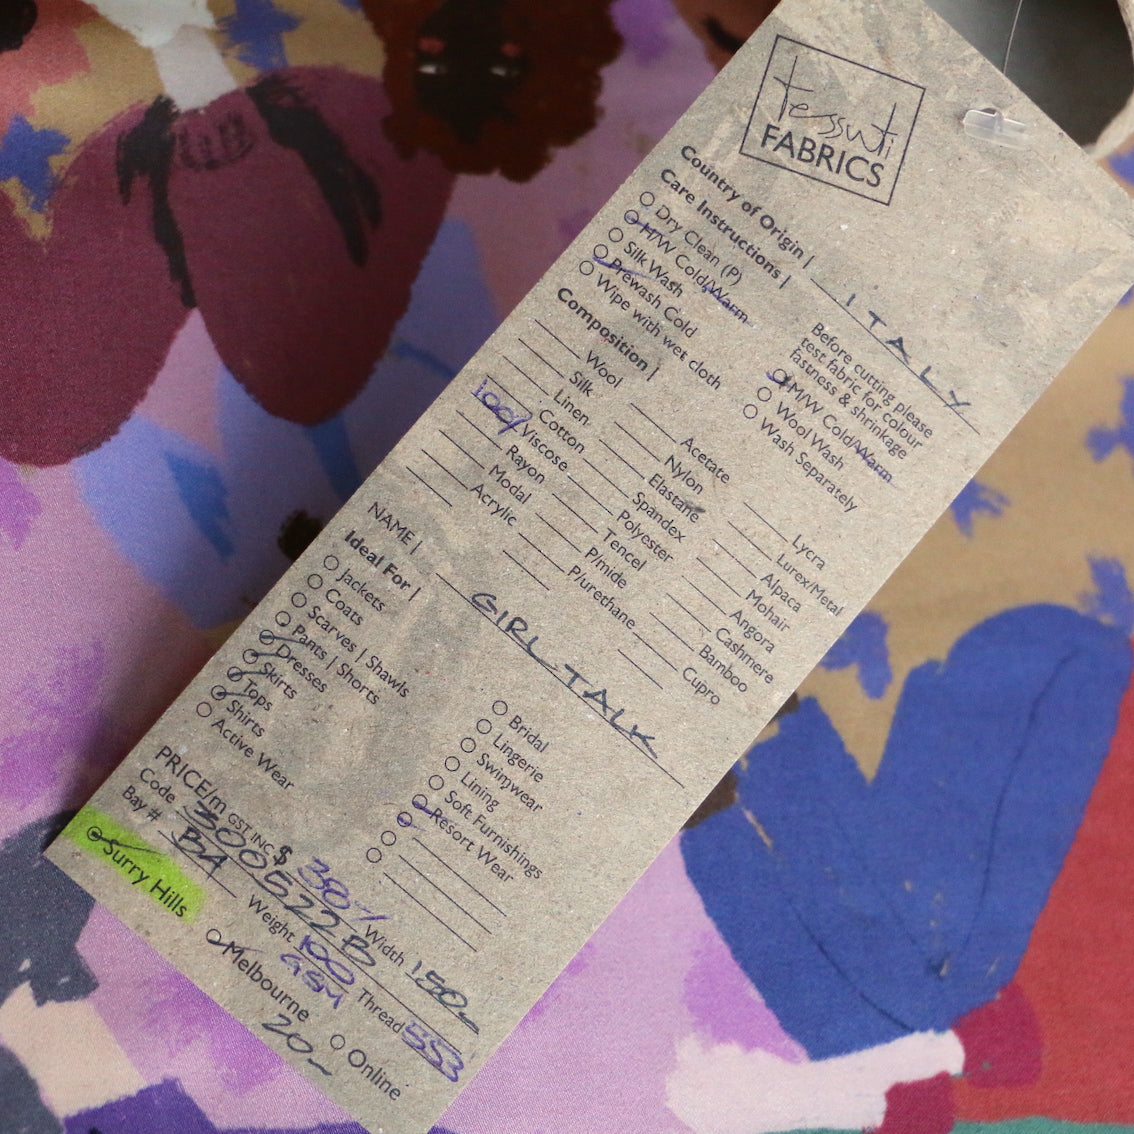 tessuti
FABRICS
Country of Origin | ITALY
Care Instructions |
Dry Clean (P)
H/W Cold/Warm
Silk Wash
Prewash Cold
Wipe with wet cloth
Before cutting please
test fabric for colour
fastness & shrinkage
M/W Cold/Warm
Wool Wash
Wash Separately
Composition |
Wool
Silk
Linen
Cotton
100% Viscose
Rayon
Modal
Acrylic
Acetate
Nylon
Elastane
Spandex
Polyester
Tencel
P/mide
P/urethane
Lycra
Lurex/Metal
Alpaca
Mohair
Angora
Cashmere
Bamboo
Cupro
NAME | GIRL TALK
Ideal For |
Jackets
Coats
Scarves | Shawls
Pants | Shorts
Dresses
Skirts
Tops
Shirts
Active Wear
Bridal
Lingerie
Swimwear
Lining
Soft Furnishings
Resort Wear
PRICE/m GST INC $
Code 300522B Width 150
Bay # BA Weight 100 GSM Thread 553
Surry Hills
Melbourne
20
Online